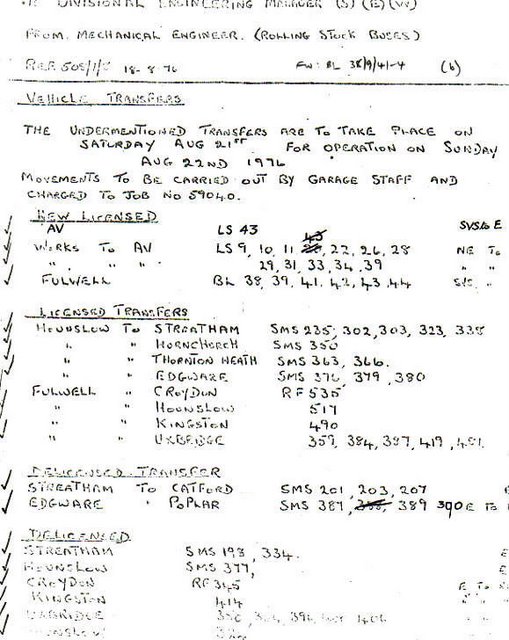 DIVISIONAL ENGINEERING MANAGER (S) (E) (W)
FROM. MECHANICAL ENGINEER. (ROLLING STOCK BUSES)
REF 508/1/ 18-8-76 FW: BL 38/9/41-4 (6)
VEHICLE TRANSFERS
THE UNDERMENTIONED TRANSFERS ARE TO TAKE PLACE ON
SATURDAY AUG 21ST FOR OPERATION ON SUNDAY
AUG 22ND 1976
MOVEMENTS TO BE CARRIED OUT BY GARAGE STAFF AND
CHARGED TO JOB NO 59040.
NEW LICENSED
AV LS 43 E
WORKS TO AV LS 9, 10, 11, 22, 26, 28 NE TO
" " " 29, 31, 33, 34, 39 " "
FULWELL BL 38, 39, 41, 42, 43, 44
LICENSED TRANSFERS
HOUNSLOW TO STREATHAM SMS 235, 302, 303, 323, 338
" " HORNCHURCH SMS 350
" " THORNTON HEATH SMS 363, 366.
" " EDGWARE SMS 376, 379, 380
FULWELL " CROYDON RF 535
" " HOUNSLOW 517
" " KINGSTON 490
" " UXBRIDGE 359, 384, 397, 419, 481
DELICENSED TRANSFER
STREATHAM TO CATFORD SMS 201, 203, 207
EDGWARE " POPLAR SMS 387, 389 390 E TO
DELICENSED
STREATHAM SMS 193, 334. E
HOUNSLOW SMS 377, E
CROYDON RF 345 E TO
KINGSTON 414
UXBRIDGE
HOUNSLOW